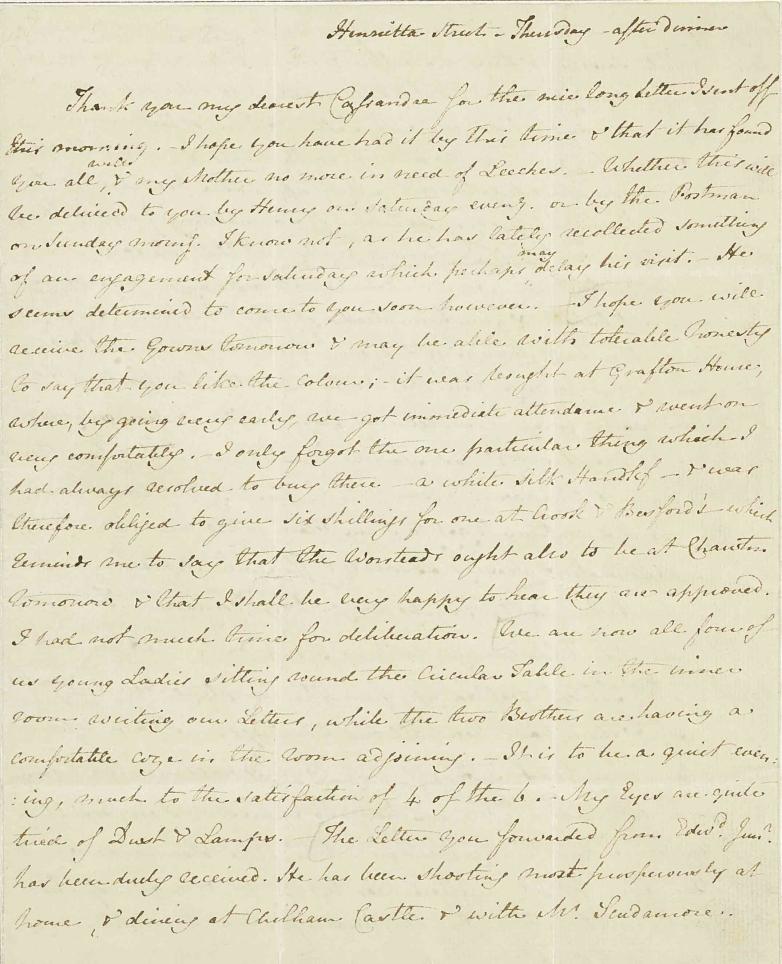 Henrietta Street - Thursday - after dinner
Thank you my dearest Cassandra for the nice long Letter I sent off
this morning. - I hope you have had it by this time & that it has found
you all well, & my Mother no more in need of Leeches. - Whether this will
be delivered to you by Henry on Saturday eveng. or by the Postman
on Sunday morng. I know not, as he has lately recollected something
of an engagement for Saturday which perhaps may delay his visit. - He
seems determined to come to you soon however. - I hope you will
receive the Gowns tomorrow & may be able with tolerable honesty
to say that you like the Colour; - it was bought at Grafton House,
where, by going very early, we got immediate attendance & went on
very comfortably. - I only forgot the one particular thing which I
had always resolved to buy there - a white silk Handkf - & was
therefore obliged to give six shillings for one at Crook & Besford's - which
reminds me to say that the Worsteads ought also to be at Chawton
tomorrow & that I shall be very happy to hear they are approved.
I had not much time for deliberation. We are now all four of
us young Ladies sitting round the Circular Table in the inner
room writing our Letters, while the two Brothers are having a
comfortable coze in the room adjoining. - It is to be a quiet even:
:ing, much to the satisfaction of 4 of the 6. - My Eyes are quite
tired of Dust & Lamps. - The Letter you forwarded from Edwd. Junr.
has been duly received. He has been shooting most prosperously at
home, & dining at Chilham Castle & with Mr. Scudamore. -